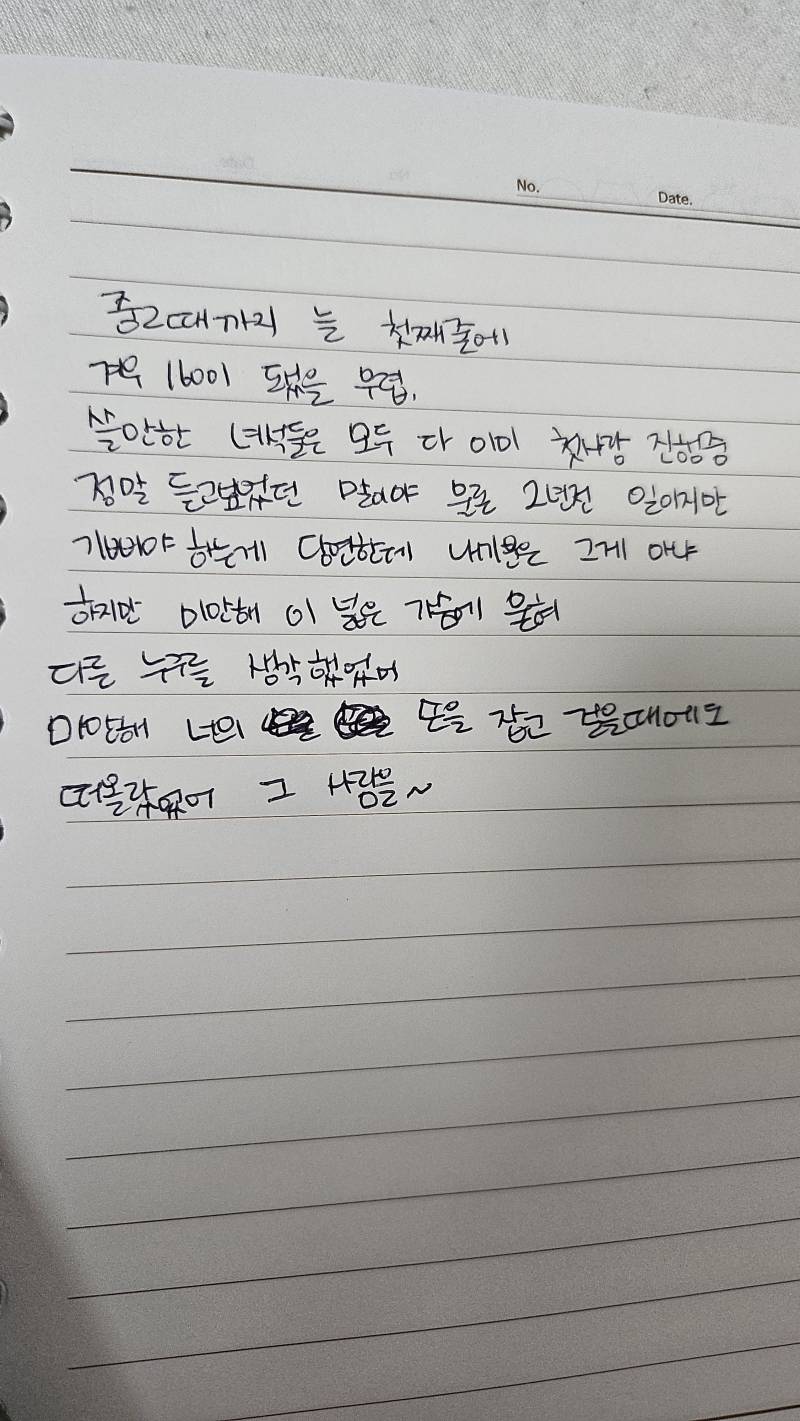 No.
Date.
중2때까지 늘 첫째줄에
겨우 160이 됐을 무렵,
쓸만한 녀석들은 모두 다 이미 첫사랑 진행중
정말 듣고싶었던 말이야 물론 2년전 일이지만
기뻐야 하는게 당연한데 내기분은 그게 아냐
하지만 미안해 이 넓은 가슴에 묻혀
다른 누구를 생각했었어
미안해 너의 손을 잡고 걸을때에도
떠올랐었어 그 사람을~